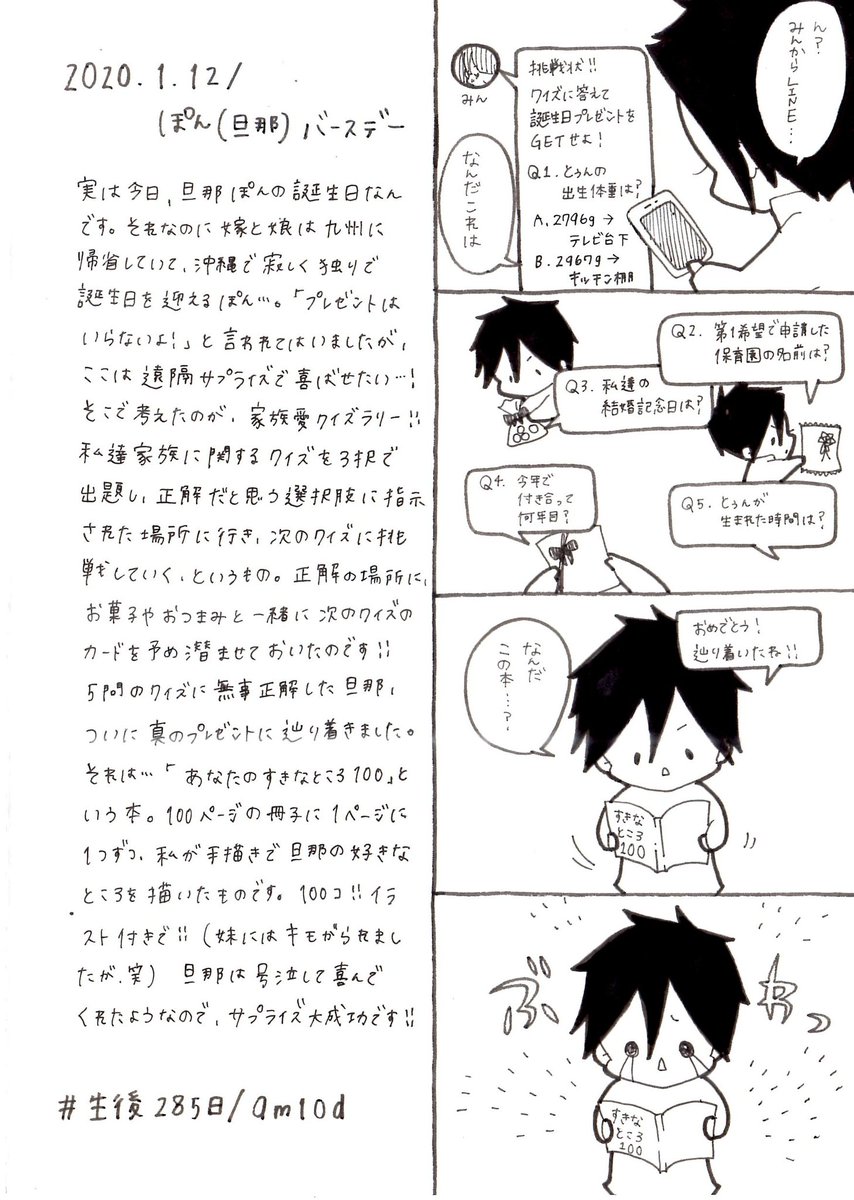 2020.1.12/
ぽん(旦那)バースデー
実は今日、旦那ぽんの誕生日なん
です。それなのに嫁と娘は九州に
帰省していて、沖縄で寂しく独りで
誕生日を迎えるぽん…。「プレゼントは
いらないよ!」と言われてはいましたが、
ここは遠隔サプライズで喜ばせたい…!
そこで考えたのが、家族愛クイズラリー!!
私達家族に関するクイズを3択で
出題し、正解だと思う選択肢に指示
された場所に行き、次のクイズに挑
戦していく、というもの。正解の場所に、
お菓子やおつまみと一緒に次のクイズの
カードを予め潜ませておいたのです!!
5問のクイズに無事正解した旦那、
ついに真のプレゼントに辿り着きました。
それは…「あなたのすきなところ100」と
いう本。100ページの冊子に1ページに
1つずつ、私が手描きで旦那の好きな
ところを描いたものです。100コ!!イラ
スト付きで!!(妹にはキモがられまし
たが.笑) 旦那は号泣して喜んで
くれたようなので、サプライズ大成功です!!
#生後285日/am10d
ん?
みんから
LINE…
みん
挑戦状!!
クイズに答えて
誕生日プレゼントを
GETせよ!
Q1.とぅんの
出生体重は?
A.2796g→
テレビ台下
B.2967g→
キッチン棚
なんだこれは
Q2.第1希望で申請した
保育園の名前は?
Q3.私達の
結婚記念日は?
Q4.今年で
付き合って
何年目?
Q5.とぅんが
生まれた時間は?
おめでとう!
辿り着いたね!!
なんだ
この本…?
すきな
ところ
100
ぶわっ
すきな
ところ
100